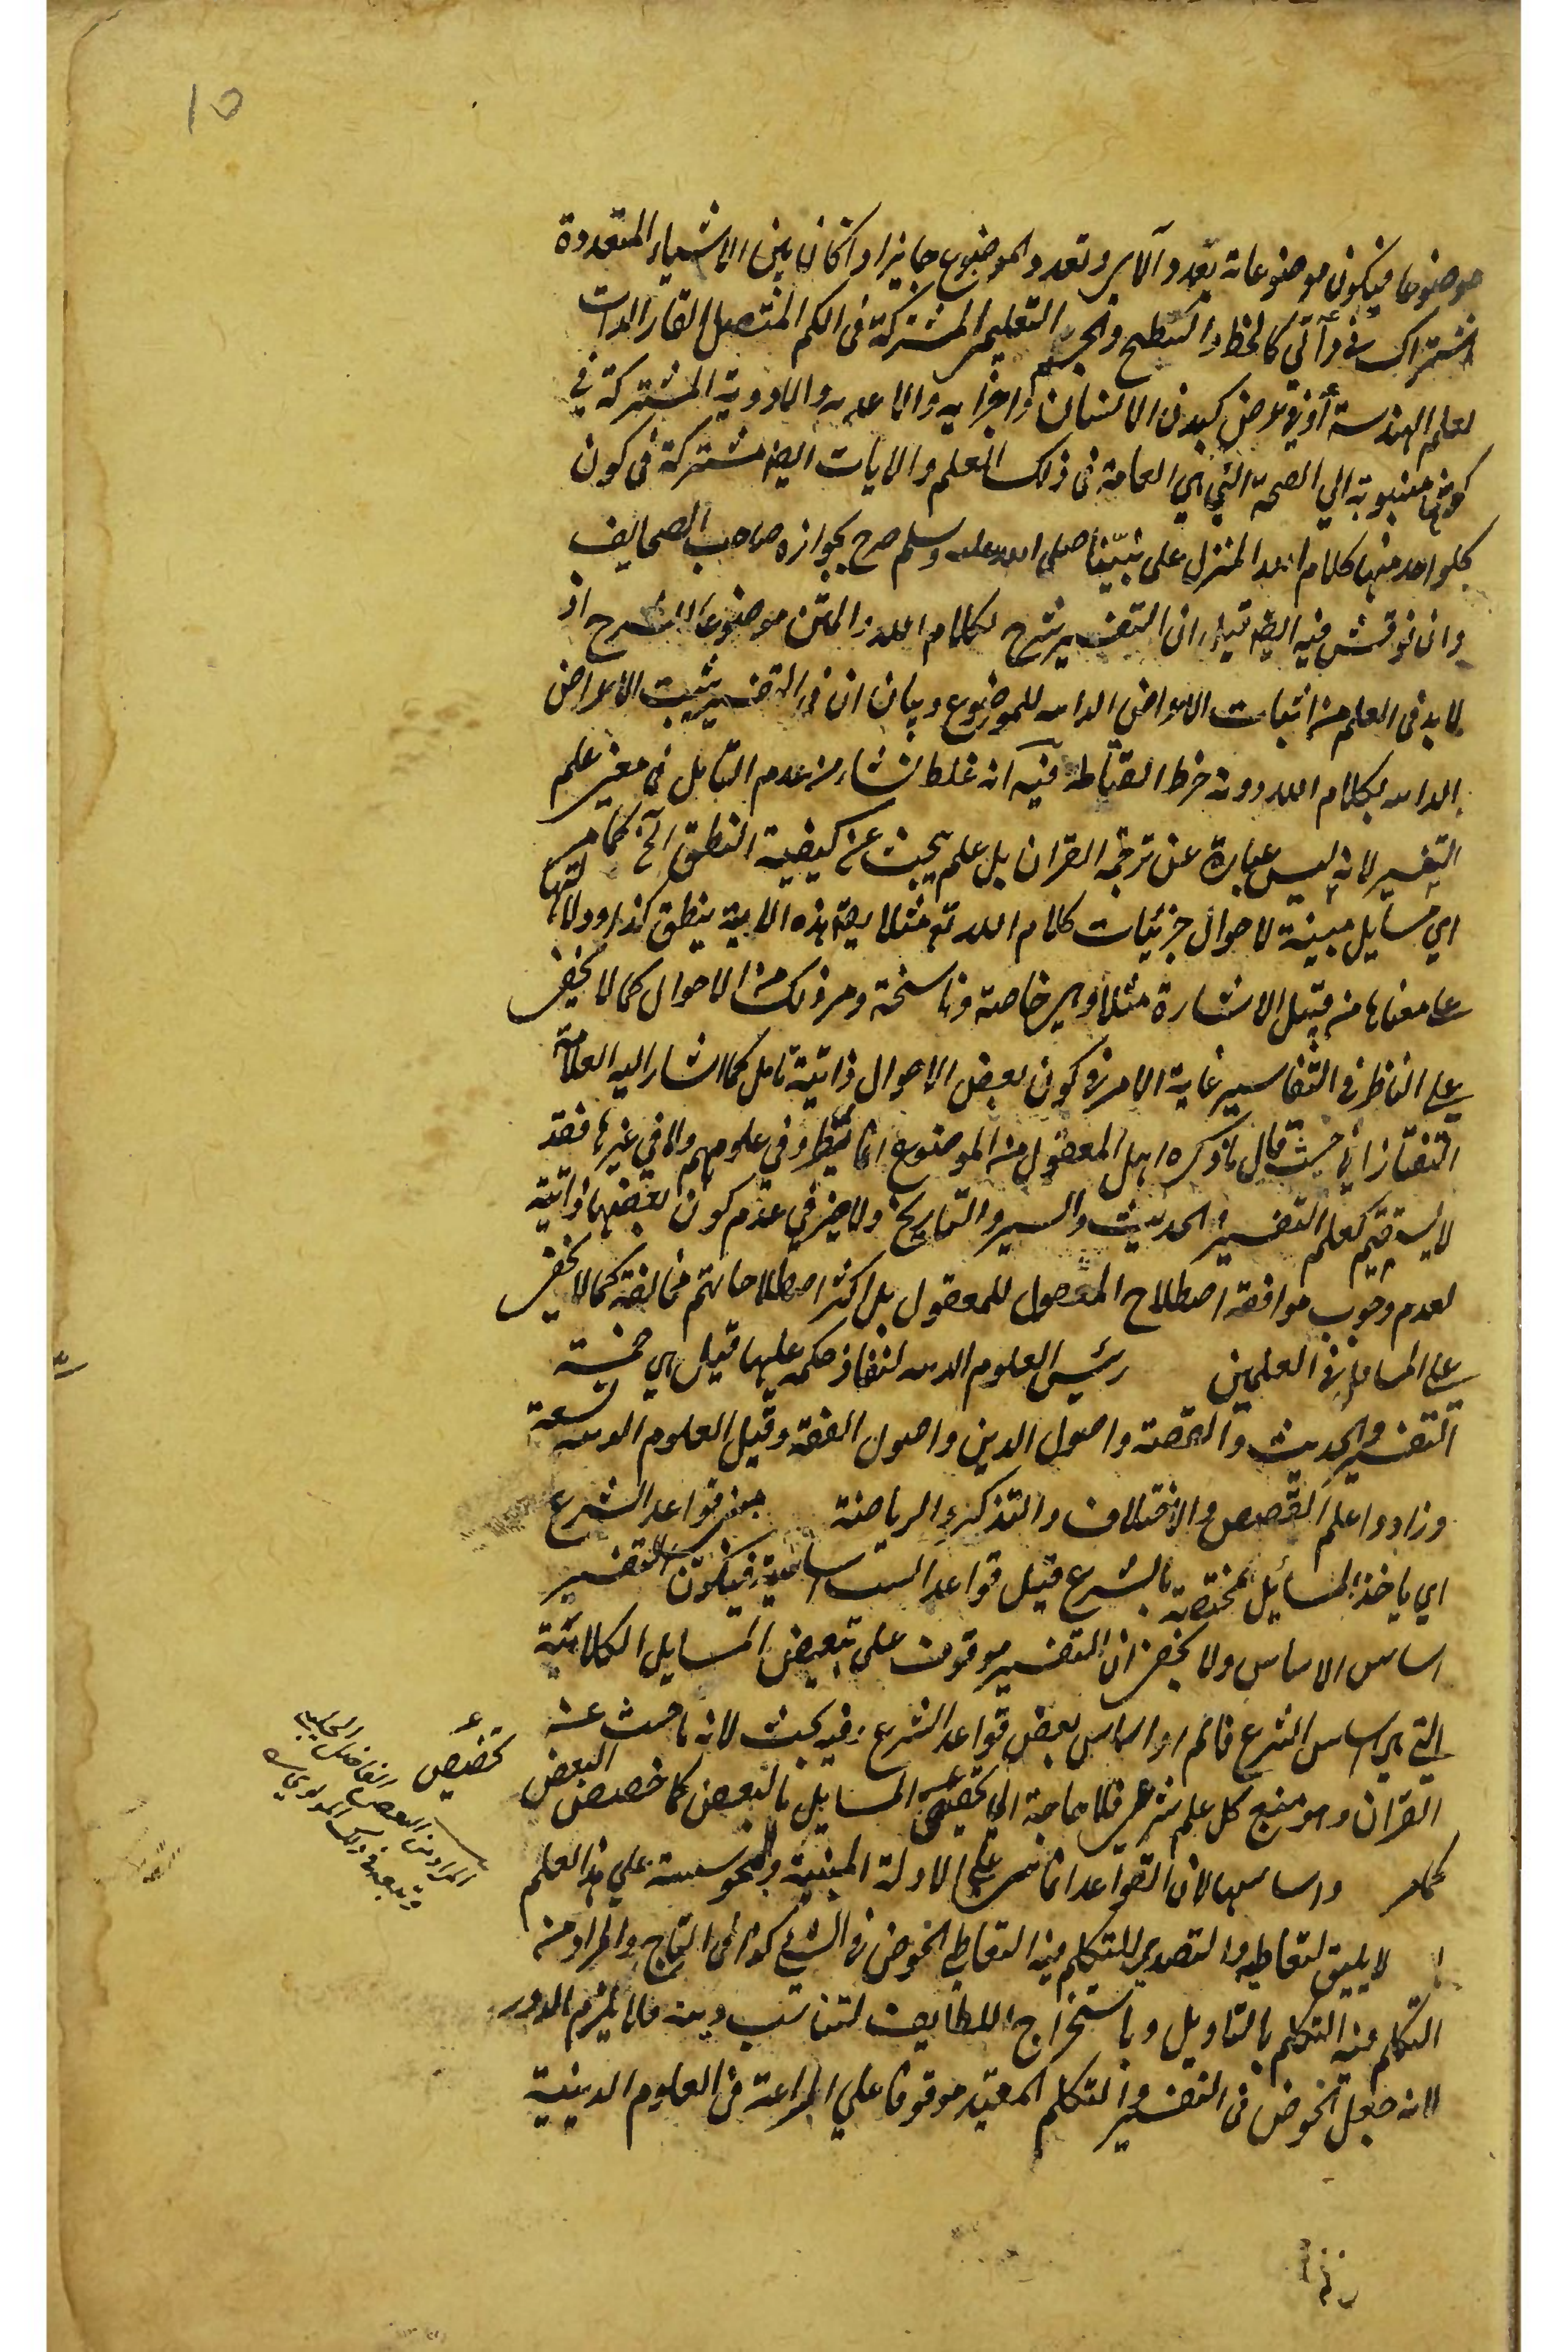 10
موضوعا فيكون موضوعاته بعدد الآى وتعدد الموضوع جايز اذا كان بين الاشياء المتعددة
اشتراك فى ذاتي كالخط والسطح والجسم التعليمى المشتركة فى الكم المتصل القار الذات
لعلم الهندسة أو فى عرض كبدن الانسان واجزايه والاغديه والادوية المشتركة في
كونها منسوبة الي الصحة التي هي العامة فى ذلك العلم والايات ايضا مشتركة فى كون
كل واحد منها كلام الله المنزل على نبيّنا صلى الله عليه وسلم صرح بجوازه صاحب الصحايف
وان نوقش فيه ايضا قيل ان التفسير شرح لكلام الله والمتن موضوعا للشرح اذ
لا بد فى العلم من اثبات الاعراض الذاتيه للموضوع وبيان ان فى التفسير يثبت الاعراض
الذاتيه لكلام الله دونه خرط القتاد فيه انه غلط نشأ من عدم التأمل فى معنى علم
التفسير لانه ليس عبارة عن ترجمة القران بل علم يبحث عن كيفية النطق آلخ كما مر
اي مسايل مبينة لاحوال جزئيات كلام الله تع مثلا يقال هذه الآية ينطق كذا ودلالتها
على معناها من قبيل الاشارة مثلا أو هي خاصة وناسخة ومن ذلك من الاحوال كما لا يخفى
على الناظر فى التفاسير غاية الامر فى كون بعض الاحوال ذاتية تامل كما اشار اليه العلامة
التفتازاني حيث قال ما ذكره اهل المعقول من الموضوع انما يطرد في علومهم واما في غيرها فقد
لا يستقيم كعلم التفسير والحديث والسير والتاريخ ولا ضير في عدم كون بعضها ذاتية
لعدم وجوب موافقة اصطلاح المنقول للمعقول بل اكثر اصطلاحاتهم مخالفة كما لا يخفى
على المتامل فى العلمين رئيس العلوم الدينيه لنفاذ حكمه عليها قيل هي خمسة
التفسير والحديث والفقه واصول الدين واصول الفقه وقيل العلوم الدينيه تسعة
وزادوا علم القصص والاختلاف والتذكير والرياضة مبنى قواعد الشرع
اي ياخذ المسائل المختصة بالشرع قيل قواعد الشرع اساسية فيكون التفسير
اساس الاساس ولا يخفى ان التفسير موقوف على بعض المسايل الكلامية
التي هي اساس الشرع فالمراد اساس بعض قواعد الشرع وفيه بحث لانه باحث عن
القرآن وهو منبع كل علم شرعى فلا حاجة الي تخصيص المسايل بالبعض كما خصص البعض
كما مر واساسها لان القواعد انما على الادلة المبنية والمؤسسة على هذا العلم
لا يليق لتعاطيه والتصدى للتكلم فيه التعاطى الخوض فى الشئ كذا فى التاج والمراد من
التكلم فيه التكلم بالتاويل وباستخراج اللطايف لتناسب دينه فلا يلزم الدور
لانه جعل الخوض فى التفسير والتكلم المقيد موقوفا على البراعة فى العلوم الدينية
تخصيص
المراد من البعض الفاضل